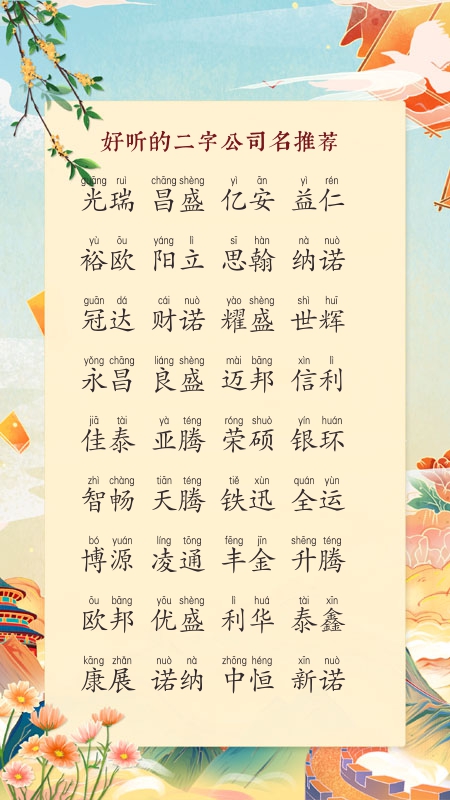 好听的二字公司名推荐
guāng ruì chāng shèng yì ān yì rén
光瑞 昌盛 亿安 益仁
yù ōu yáng lì sī hàn nà nuò
裕欧 阳立 思翰 纳诺
guān dá cái nuò yào shèng shì huī
冠达 财诺 耀盛 世辉
yǒng chāng liáng shèng mài bāng xìn lì
永昌 良盛 迈邦 信利
jiā tài yà téng róng shuò yín huán
佳泰 亚腾 荣硕 银环
zhì chàng tiān téng tiě xùn quán yùn
智畅 天腾 铁迅 全运
bó yuán líng tōng fēng jīn shēng téng
博源 凌通 丰金 升腾
ōu bāng yōu shèng lì huá tài xīn
欧邦 优盛 利华 泰鑫
kāng zhǎn nuò nà zhōng héng xīn nuò
康展 诺纳 中恒 新诺